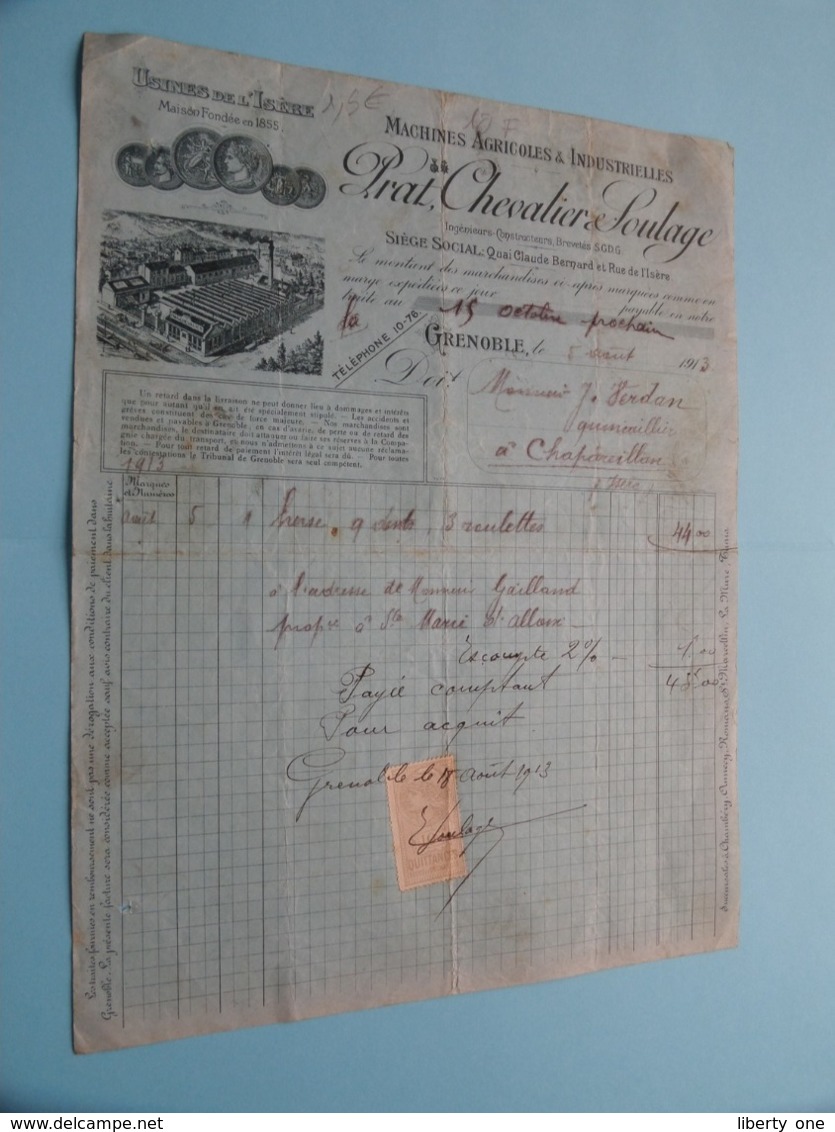 USINES DE L'ISÈRE
Maison Fondée en 1855
2,5€
10 F
MACHINES AGRICOLES & INDUSTRIELLES
Prat, Chevalier & Soulage
Ingénieurs-Constructeurs, Brevetés S.G.D.G.
SIÈGE SOCIAL: Quai Claude Bernard et Rue de l'Isère
Le montant des marchandises ci-après marquées comme en
marge expédiées ce jour payable en notre
traite au 15 octobre prochain
TÉLÉPHONE 10-76
GRENOBLE, le 5 août 1913
Doit Monsieur J. Verdan
quincaillier
à Chapareillan
Isère
Un retard dans la livraison ne peut donner lieu à dommages et intérêts
que pour autant qu'il en ait été spécialement stipulé. — Les accidents et
grèves constituent des cas de force majeure. — Nos marchandises sont
vendues et payables à Grenoble, en cas d'avarie, de perte ou de retard des
marchandises, le destinataire doit attaquer ou faire ses réserves à la Compa-
gnie chargée du transport, et nous n'admettons à ce sujet aucune réclama-
tion. — Pour tout retard de paiement l'intérêt légal sera dû. — Pour toutes
les contestations le Tribunal de Grenoble sera seul compétent.
1913
Marques
et Numéros
Août 5 1 herse, 9 dents, 3 roulettes 44.00
à l'adresse de Monsieur Gailland
propre à Ste Marie d'alloix
Escompte 2% — 1.00
43.00
Payé comptant
Pour acquit
Grenoble le 18 Août 1913
Soulage
QUITTANCES
Les traites fermes en remboursement ne sont pas une dérogation aux conditions de paiement dans
Grenoble. La présente facture sera considérée comme acceptée sauf avis contraire du client dans la huitaine
Succursales à Chambéry, Annecy, Romans, St Marcellin, La Mure, Tunis
liberty one